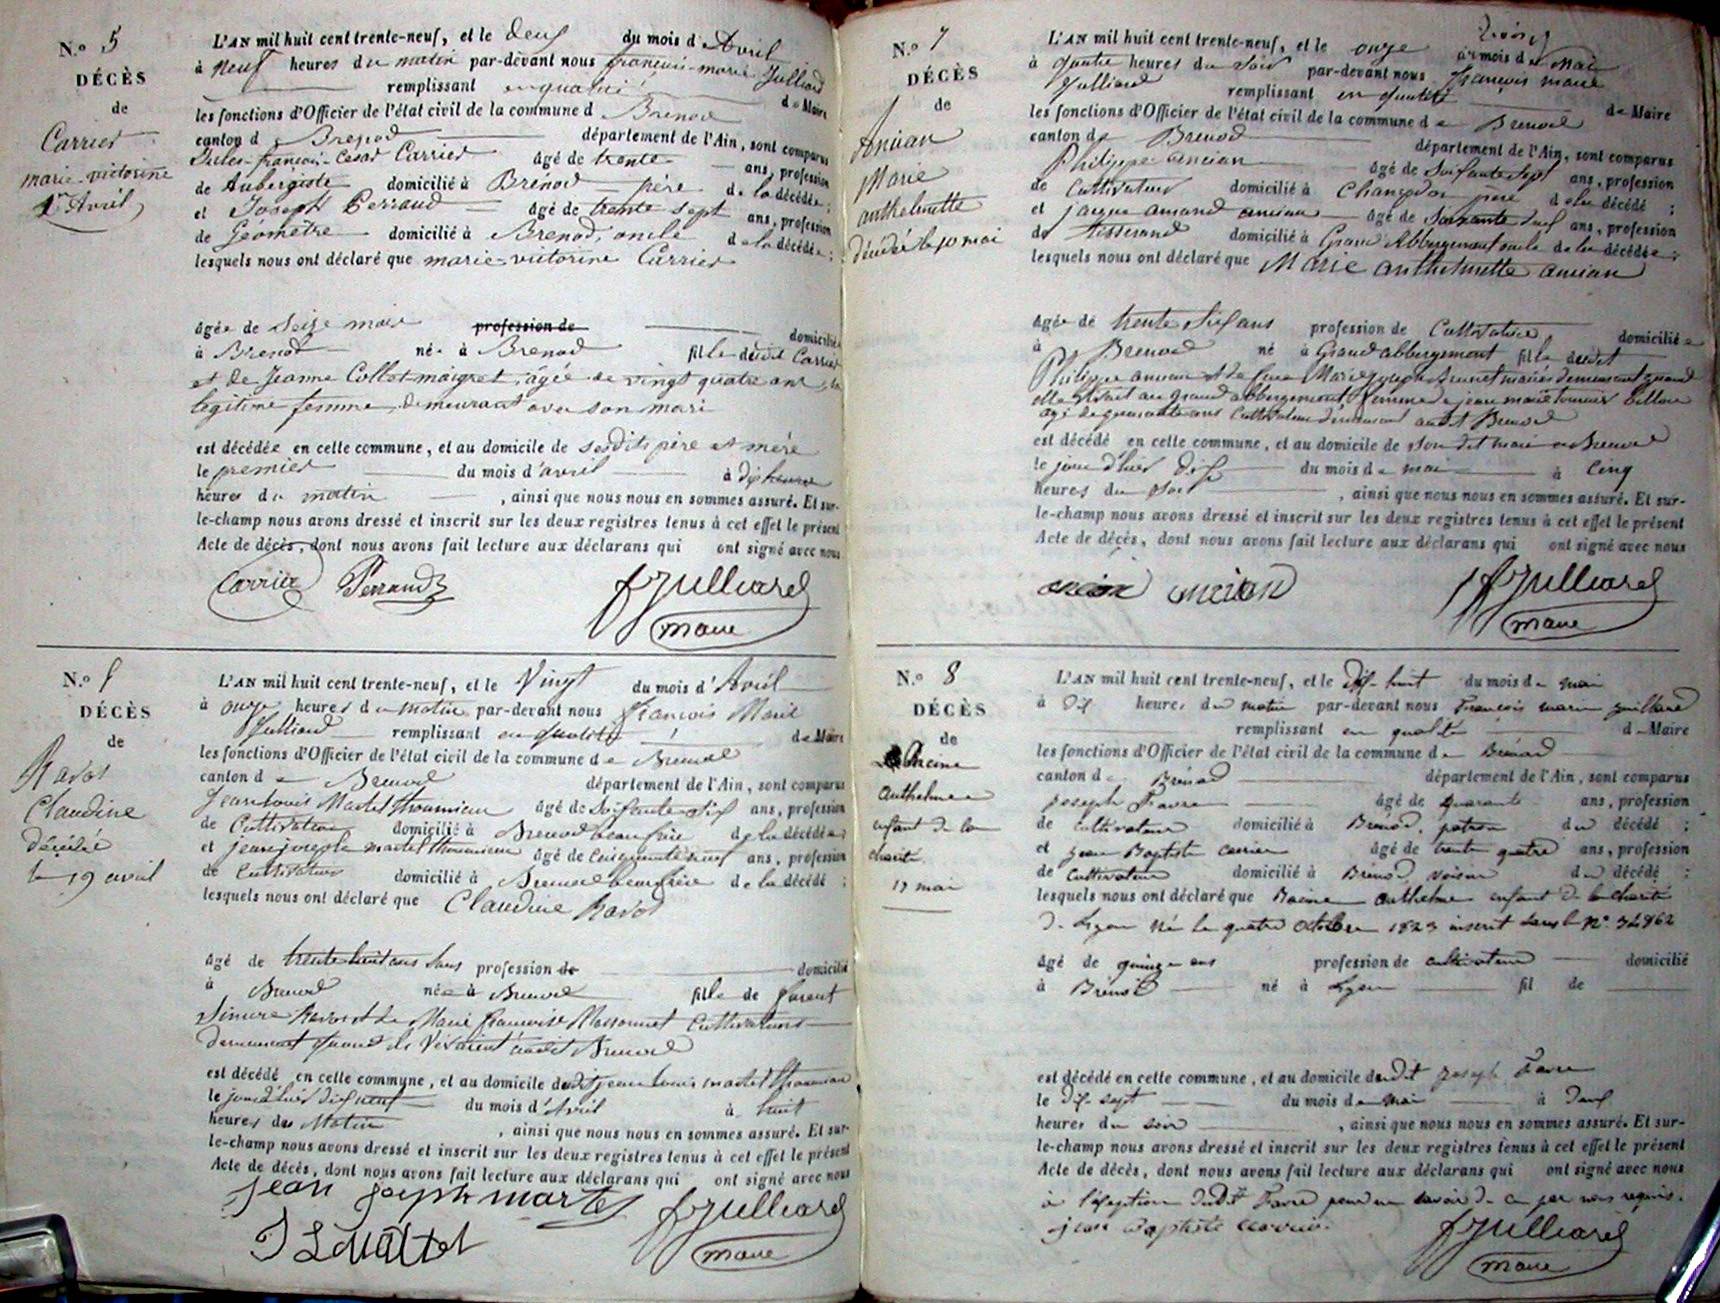 N.º 5
DÉCÈS
de
Carrier
marie victorine
1er Avril
L'AN mil huit cent trente-neuf, et le deux du mois d'Avril
à neuf heures du matin par-devant nous françois-marie Julliard
remplissant en qualité de Maire
les fonctions d'Officier de l'état civil de la commune d Brenod
canton d Brenod département de l'Ain, sont comparus
Jules-françois-Cesar Carrier âgé de trente ans, profession
de Aubergiste domicilié à Brénod père de la décédée;
et Joseph Perraud âgé de trente sept ans, profession
de Géomètre domicilié à Brenod, oncle de la décédée;
lesquels nous ont déclaré que marie-victorine Carrier
âgée de seize mois profession de domiciliée
à Brenod née à Brenod fille dudit Carrier
et de Jeanne Collet maigret, âgée de vingt quatre ans, sa
légitime femme, demeurant avec son mari
est décédée en cette commune, et au domicile de sesdits père et mère
le premier du mois d'avril à dix heures
heures du matin, ainsi que nous nous en sommes assuré. Et sur-
le-champ nous avons dressé et inscrit sur les deux registres tenus à cet effet le présent
Acte de décès, dont nous avons fait lecture aux déclarans qui ont signé avec nous
Carrier Perraud fJulliard
maire
N.º
DÉCÈS
de
Ravot
Claudine
décédée
le 19 avril
L'AN mil huit cent trente-neuf, et le Vingt du mois d'Avril
à onze heures du matin par-devant nous François Marie
Julliard remplissant en qualité de Maire
les fonctions d'Officier de l'état civil de la commune de Brenod
canton de Brenod département de l'Ain, sont comparus
Jean Louis Martel thoumien âgé de soixante six ans, profession
de Cultivateur domicilié à Brenod beau frère de la décédée;
et jean joseph martel thoumien âgé de cinquante neuf ans, profession
de Cultivateur domicilié à Brenod beau frère de la décédé;
lesquels nous ont déclaré que Claudine Ravot
âgé de trente huit ans sans profession de domicilié
à Brenod née à Brenod fille de furent
Ravot et de Marie françoise Massonnet Cultivateurs
demeurant quand ils vivaient audit Brenod
est décédé en cette commune, et au domicile dudit jean Louis martel thoumien
le jour d'hier dix neuf du mois d'Avril à huit
heures du Matin, ainsi que nous nous en sommes assuré. Et sur-
le-champ nous avons dressé et inscrit sur les deux registres tenus à cet effet le présent
Acte de décès, dont nous avons fait lecture aux déclarans qui ont signé avec nous
jean joseph martel fJulliard
maire
N.º 7
DÉCÈS
de
Ancian
Marie
anthelmette
décédée le 10 mai
L'AN mil huit cent trente-neuf, et le onze du mois de mai
à quatre heures du soir par-devant nous françois marie
Julliard remplissant en qualité de Maire
les fonctions d'Officier de l'état civil de la commune de Brenod
canton de Brenod département de l'Ain, sont comparus
Philippe ancian âgé de soixante sept ans, profession
de Cultivateur domicilié à père de la décédé;
et jacque amand ancian âgé de soixante deux ans, profession
de tisserand domicilié à Grand Abbergement oncle de la décédée;
lesquels nous ont déclaré que Marie anthelmette ancian
âgée de trente six ans profession de Cultivatrice, domiciliée
à Brenod né à Grand abbergement fille dudit
Philippe ancian et de feue Marie Josephe Brunet mariés demeurant quand
elle vivait au Grand abbergement femme de jean marie
âgé de quarante ans Cultivateur demeurant audit Brenod
est décédé en cette commune, et au domicile de son dit mari à Brenod
le jour d'hier dix du mois de mai à cinq
heures du soir, ainsi que nous nous en sommes assuré. Et sur-
le-champ nous avons dressé et inscrit sur les deux registres tenus à cet effet le présent
Acte de décès, dont nous avons fait lecture aux déclarans qui ont signé avec nous
ancian ancian fJulliard
maire
N.º 8
DÉCÈS
de
Racine
Anthelme
enfant de la
charité
17 mai
L'AN mil huit cent trente-neuf, et le dix-huit du mois de mai
à dix heures du matin par-devant nous François marie Juillard
remplissant en qualité de Maire
les fonctions d'Officier de l'état civil de la commune de Brénod
canton de Brenod département de l'Ain, sont comparus
joseph Favre âgé de quarante ans, profession
de cultivateur domicilié à Brénod, patron du décédé;
et jean Baptiste carrier âgé de trente quatre ans, profession
de cultivateur domicilié à Brénod, voisin du décédé;
lesquels nous ont déclaré que Racine anthelme enfant de la charité
de Lyon né le quatre Octobre 1823 inscrit sous le N° 34962
âgé de quinze ans profession de cultivateur domicilié
à Brénod né à Lyon fil de
est décédé en cette commune, et au domicile dudit joseph Favre
le dix-sept du mois de mai à deux
heures du soir, ainsi que nous nous en sommes assuré. Et sur-
le-champ nous avons dressé et inscrit sur les deux registres tenus à cet effet le présent
Acte de décès, dont nous avons fait lecture aux déclarans qui ont signé avec nous
à l'éxeption dudit Favre pour ne savoir de ce par nous requis.
jean Baptiste carrier. fJulliard
maire